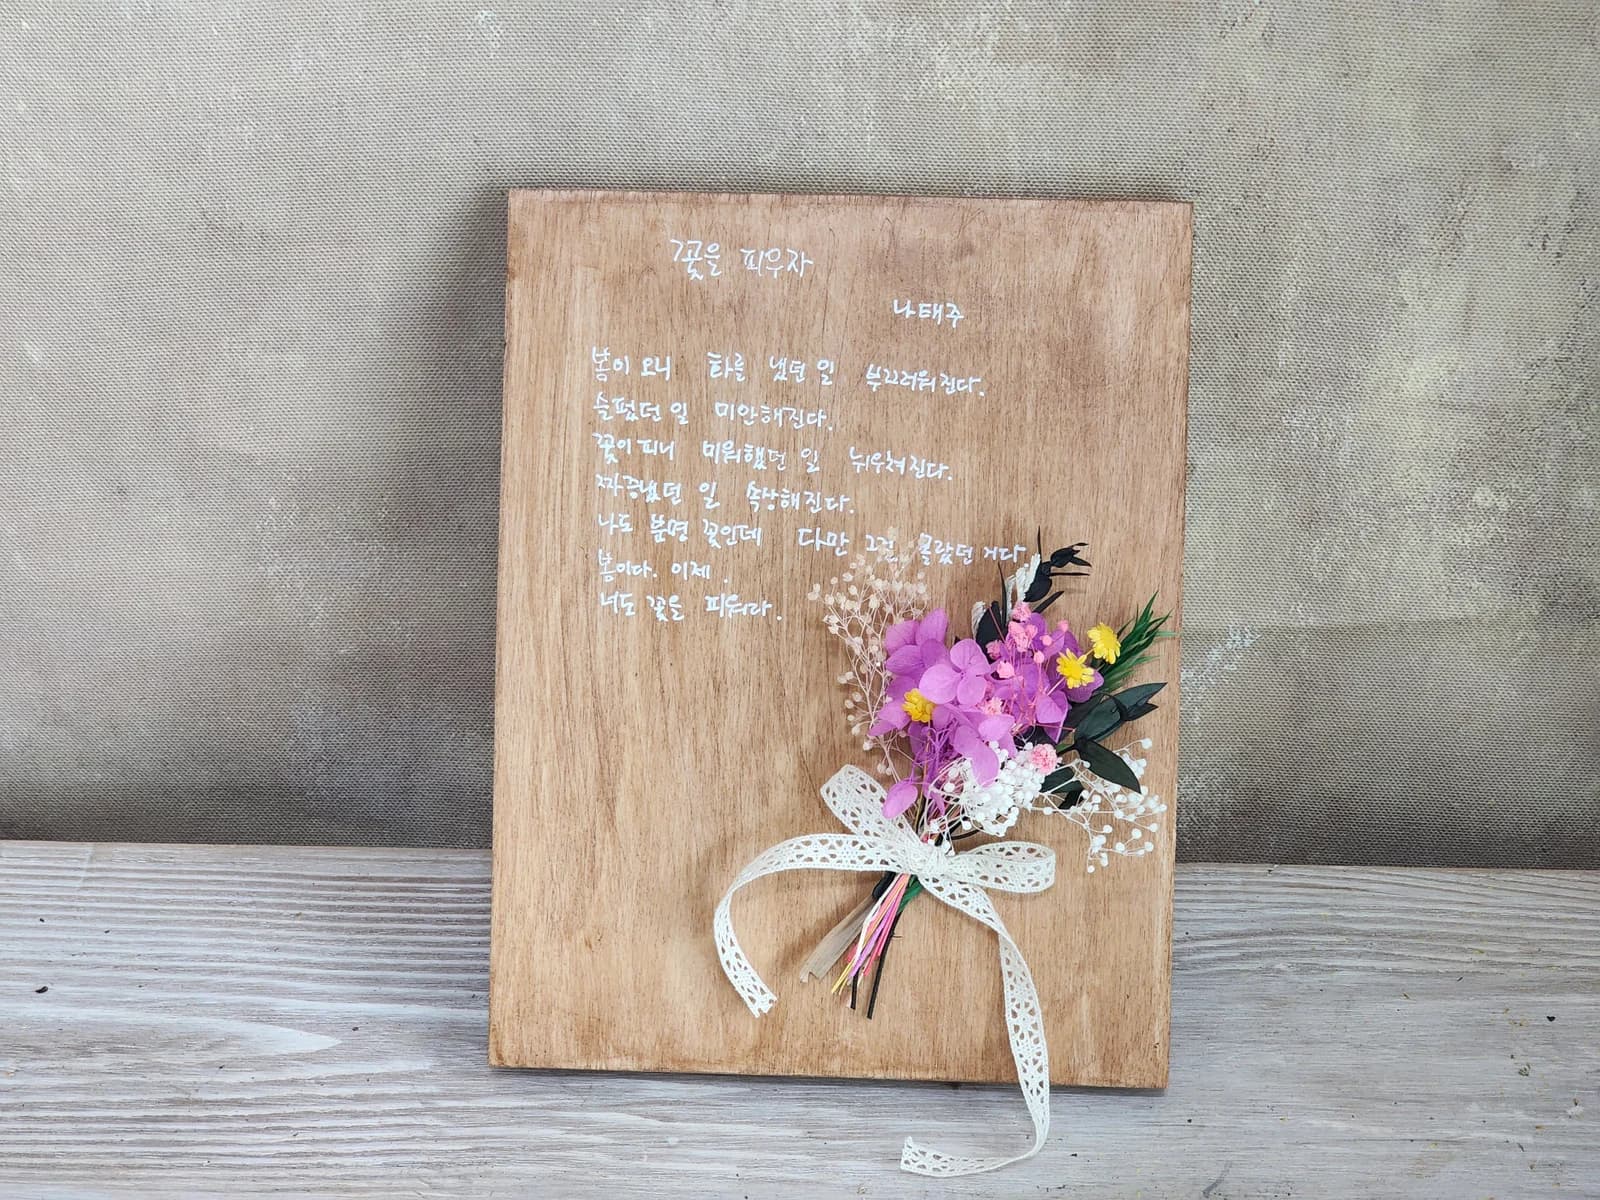 꽃을 피우자
나태주
봄이 오니 화를 냈던 일 부끄러워진다.
슬펐던 일 미안해진다.
꽃이 피니 미워했던 일 뉘우쳐진다.
짜증냈던 일 속상해진다.
나도 분명 꽃인데 다만 그걸 몰랐던 거다
봄이다. 이제.
너도 꽃을 피워라.